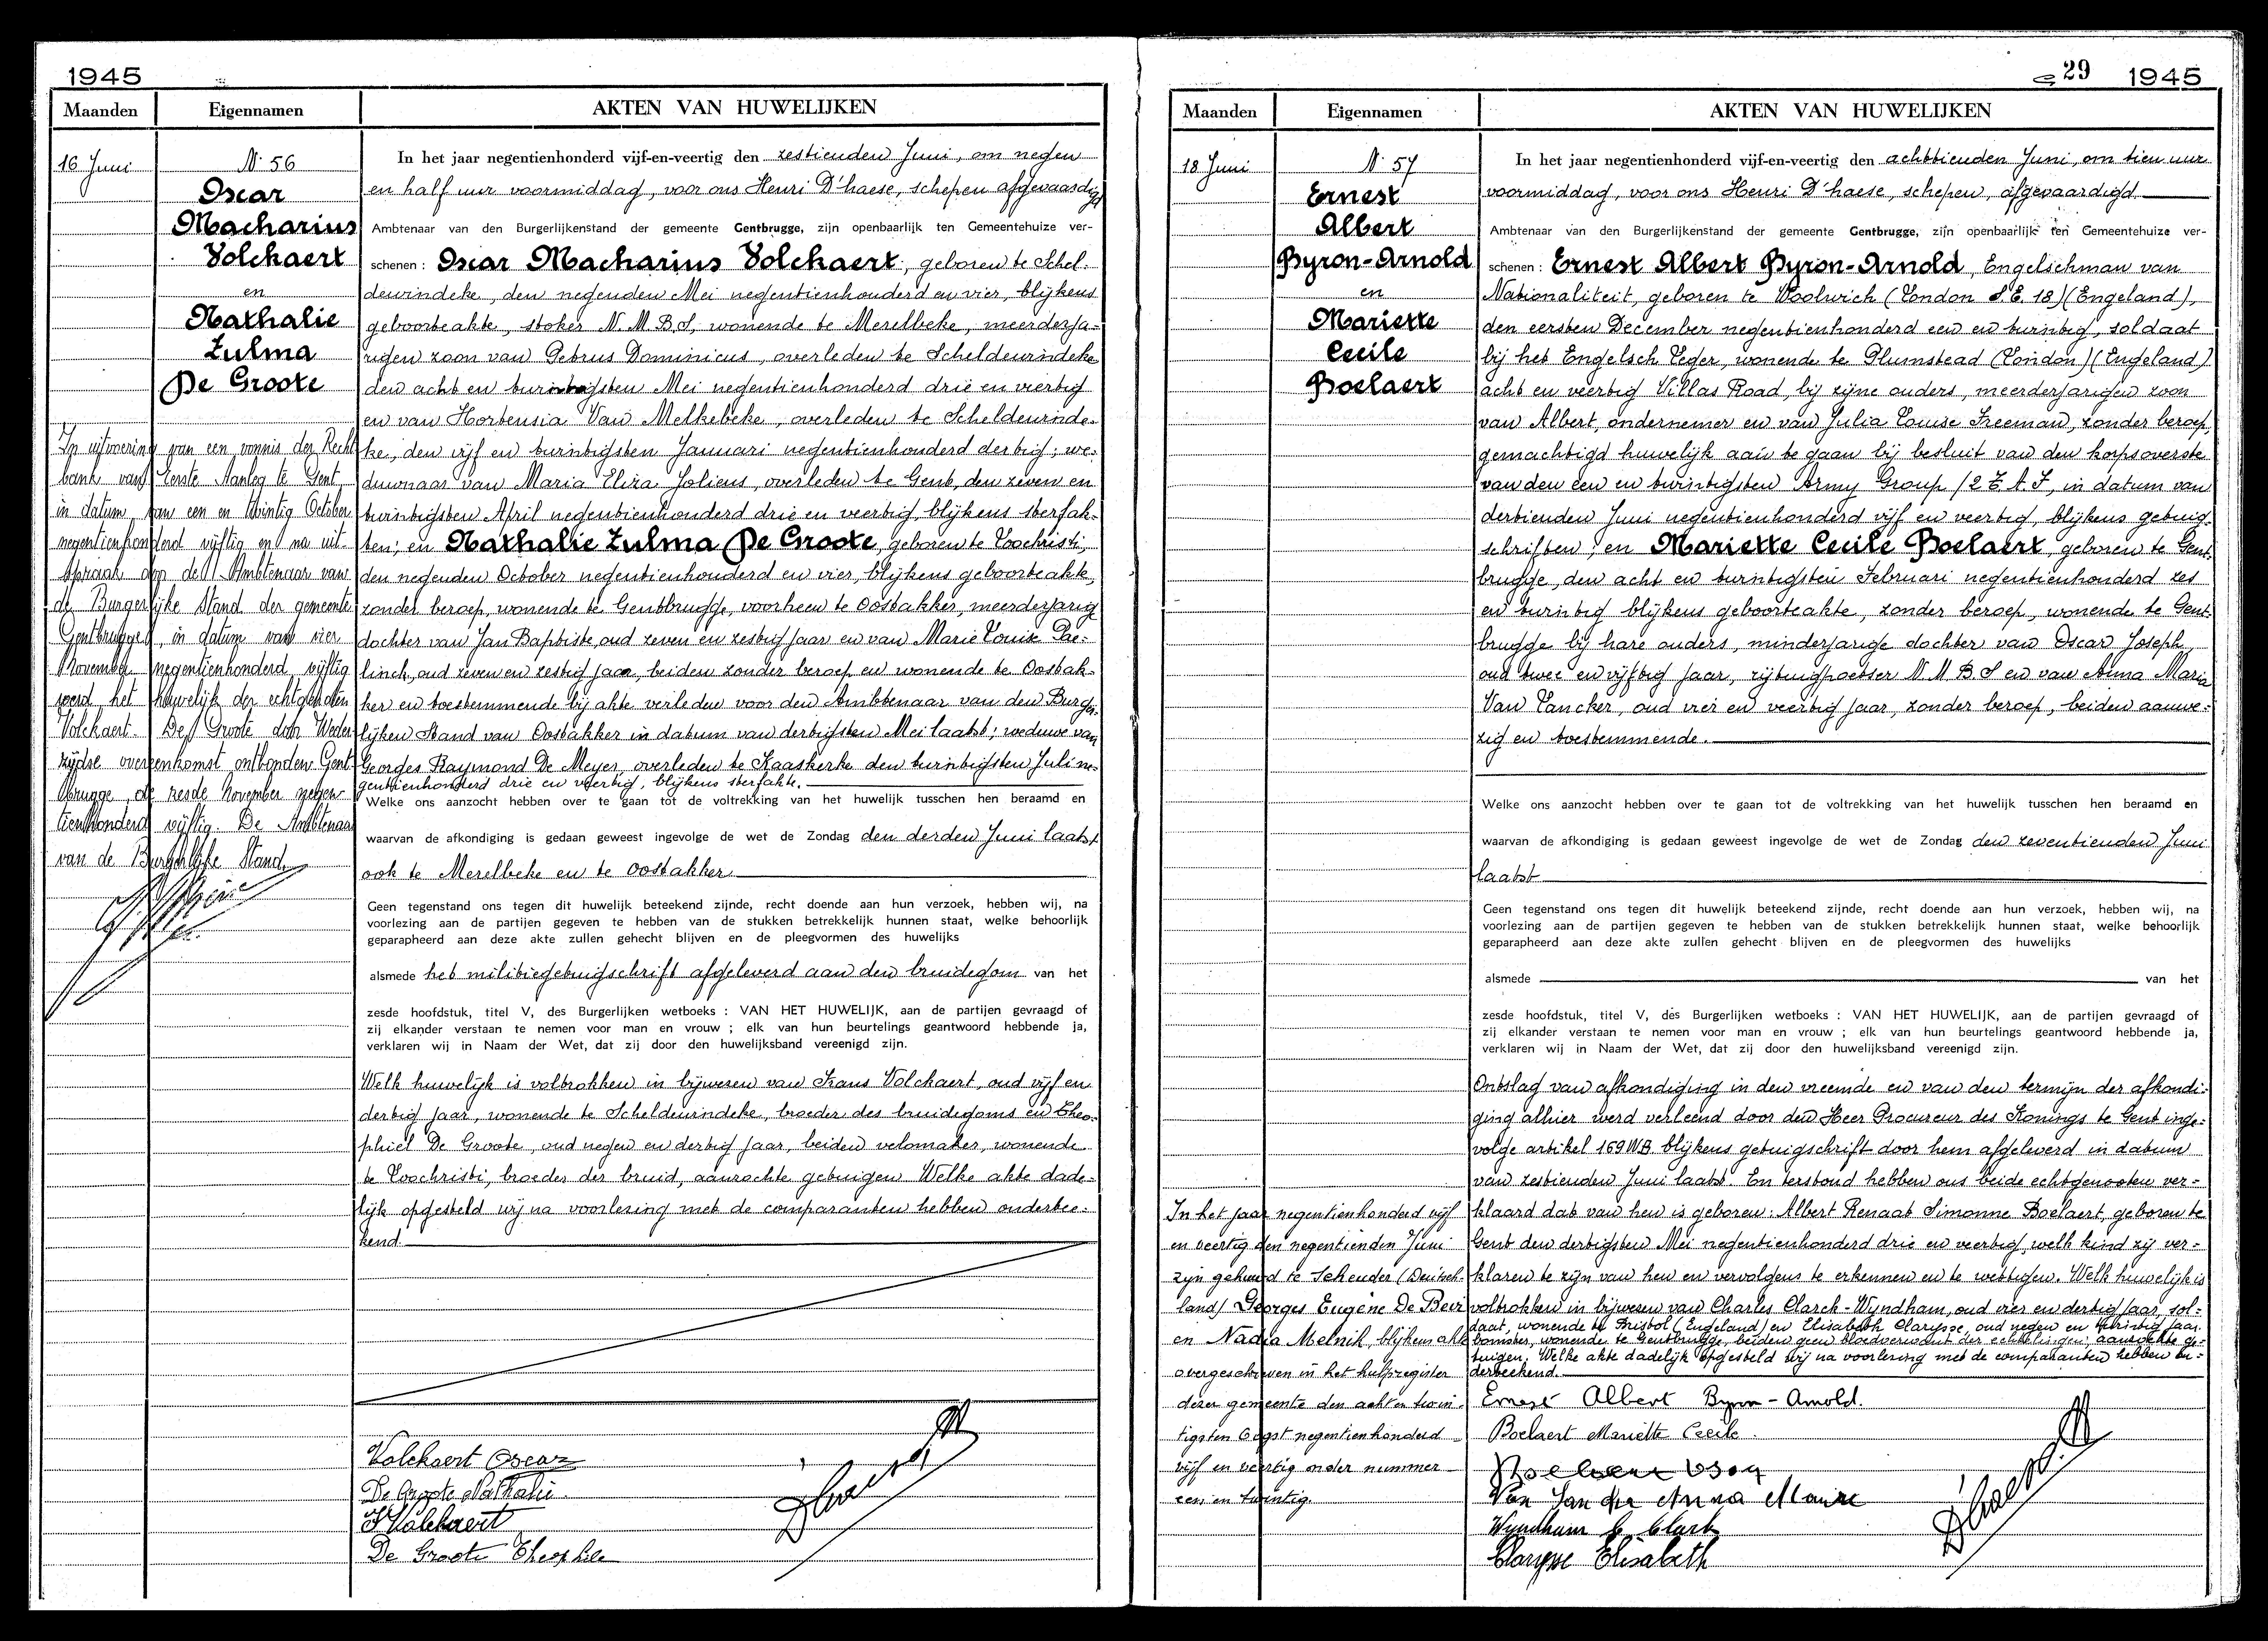 1945
Maanden Eigennamen AKTEN VAN HUWELIJKEN
16 Juni
N. 56
Oscar
Macharius
Volckaert
en
Nathalie
Zulma
De Groote
In uitvoering van een vonnis der Recht
bank van Eerste Aanleg te Gent,
in datum van een en twintig October
negentienhonderd vijftig en na uit-
spraak door de Ambtenaar van
de Burgerlijke Stand der gemeente
Gentbrugge, in datum van vier
November negentienhonderd vijftig
werd het huwelijk der echtgenoten
Volckaert - De Groote door Weder-
zijdse overeenkomst ontbonden Gent-
brugge, de zesde November negen-
tienhonderd vijftig. De Ambtenaar
van de Burgerlijke Stand,
In het jaar negentienhonderd vijf-en-veertig den zestienden Juni, om negen
en half uur voormiddag, voor ons Henri D'haese, schepen afgevaardigd
Ambtenaar van den Burgerlijkenstand der gemeente Gentbrugge, zijn openbaarlijk ten Gemeentehuize ver-
schenen : Oscar Macharius Volckaert, geboren te Schel-
dewindeke, den negenden Mei negentienhonderd en vier, blijkens
geboorteakte, stoker N.M.B.S, wonende te Merelbeke, meerderja-
rigen zoon van Petrus Dominicus, overleden te Scheldewindeke
den acht en twintigsten Mei negentienhonderd drie en veertig
en van Hortensia Van Melkebeke, overleden te Scheldewinde-
ke, den vijf en twintigsten Januari negentienhonderd dertig; we-
duwnaar van Maria Eliza Joliens, overleden te Gent, den zeven en
twintigsten April negentienhonderd drie en veertig, blijkens sterfak-
ten; en Nathalie Zulma De Groote, geboren te Loochristi,
den negenden October negentienhonderd en vier, blijkens geboorteakte,
zonder beroep, wonende te Gentbrugge, voorheen te Oostakker, meerderjarig
dochter van Jan Baptiste, oud zeven en zestig jaar en van Marie Louise Pae-
linck, oud zeven en zestig jaar, beiden zonder beroep en wonende te Oostak-
ker en toestemmende bij akte verleden voor den Ambtenaar van den Burger-
lijken Stand van Oostakker in datum van dertigsten Mei laatst; weduwe van
Georges Raymond De Meyer, overleden te Kaaskerke den twintigsten Juli ne-
gentienhonderd drie en veertig, blijkens sterfakte.
Welke ons aanzocht hebben over te gaan tot de voltrekking van het huwelijk tusschen hen beraamd en
waarvan de afkondiging is gedaan geweest ingevolge de wet de Zondag den derden Juni laatst
ook te Merelbeke en te Oostakker
Geen tegenstand ons tegen dit huwelijk beteekend zijnde, recht doende aan hun verzoek, hebben wij, na
voorlezing aan de partijen gegeven te hebben van de stukken betrekkelijk hunnen staat, welke behoorlijk
geparapheerd aan deze akte zullen gehecht blijven en de pleegvormen des huwelijks
alsmede het militiegetuigschrift afgeleverd aan den bruidegom van het
zesde hoofdstuk, titel V, des Burgerlijken wetboeks : VAN HET HUWELIJK, aan de partijen gevraagd of
zij elkander verstaan te nemen voor man en vrouw ; elk van hun beurtelings geantwoord hebbende ja,
verklaren wij in Naam der Wet, dat zij door den huwelijksband vereenigd zijn.
Welk huwelijk is voltrokken in bijwezen van Frans Volckaert, oud vijf en
dertig jaar, wonende te Scheldewindeke, broeder des bruidegoms en Theo-
phiel De Groote, oud negen en dertig jaar, beiden velomaker, wonende
te Loochristi, broeder der bruid, aanzochte getuigen. Welke akte dade-
lijk opgesteld wij na voorlezing met de comparanten hebben ondertee-
kend.
Volckaert Oscar
De Groote Nathalie
F Volckaert
De Groote Theophile
D'haese
29 1945
Maanden Eigennamen AKTEN VAN HUWELIJKEN
18 Juni
N. 57
Ernest
Albert
Byron-Arnold
en
Mariette
Cecile
Boelaert
In het jaar negentienhonderd vijf-en-veertig den achttienden Juni, om tien uur
voormiddag, voor ons Henri D'haese, schepen, afgevaardigd
Ambtenaar van den Burgerlijkenstand der gemeente Gentbrugge, zijn openbaarlijk ten Gemeentehuize ver-
schenen : Ernest Albert Byron-Arnold, Engelschman van
Nationaliteit, geboren te Woolwich (London S.E. 18) (Engeland),
den eersten December negentienhonderd een en twintig, soldaat
bij het Engelsch Leger, wonende te Plumstead (London) (Engeland)
acht en veertig Villas Road, bij zijne ouders, meerderjarigen zoon
van Albert, ondernemer en van Julia Louise Freeman, zonder beroep,
gemachtigd huwelijk aan te gaan bij besluit van den korpsoverste
van den een en twintigsten Army Group /2 T.A.F, in datum van
dertienden Juni negentienhonderd vijf en veertig, blijkens getuig-
schriften; en Mariette Cecile Boelaert, geboren te Gent-
brugge, den acht en twintigsten Februari negentienhonderd zes
en twintig blijkens geboorteakte, zonder beroep, wonende te Gent-
brugge bij hare ouders, minderjarige dochter van Oscar Joseph,
oud twee en vijftig jaar, rijtuigpoetser N.M.B.S en van Anna Maria
Van Lancker, oud vier en veertig jaar, zonder beroep, beiden aanwe-
zig en toestemmende.
Welke ons aanzocht hebben over te gaan tot de voltrekking van het huwelijk tusschen hen beraamd en
waarvan de afkondiging is gedaan geweest ingevolge de wet de Zondag den zeventienden Juni
laatst
Geen tegenstand ons tegen dit huwelijk beteekend zijnde, recht doende aan hun verzoek, hebben wij, na
voorlezing aan de partijen gegeven te hebben van de stukken betrekkelijk hunnen staat, welke behoorlijk
geparapheerd aan deze akte zullen gehecht blijven en de pleegvormen des huwelijks
alsmede van het
zesde hoofdstuk, titel V, des Burgerlijken wetboeks : VAN HET HUWELIJK, aan de partijen gevraagd of
zij elkander verstaan te nemen voor man en vrouw ; elk van hun beurtelings geantwoord hebbende ja,
verklaren wij in Naam der Wet, dat zij door den huwelijksband vereenigd zijn.
Ontslag van afkondiging in den vreemde en van den termijn der afkondi-
ging alhier werd verleend door den Heer Procureur des Konings te Gent inge-
volge artikel 169 W.B. blijkens getuigschrift door hem afgeleverd in datum
van zestienden Juni laatst. En terstond hebben ons beide echtgenooten ver-
klaard dat van hen is geboren: Albert Renaat Simonne Boelaert, geboren te
Gent den dertigsten Mei negentienhonderd drie en veertig, welk kind zij ver-
klaren te zijn van hen en vervolgens te erkennen en te wettigen. Welk huwelijk is
voltrokken in bijwezen van Charles Clarck-Wyndham, oud vier en dertig jaar, sol-
daat, wonende te Bristol (Engeland) en Elisabeth Clarysse, oud negen en twintig jaar,
wonende te Gentbrugge, beiden geen bloedverwant der echtelingen; aanzochte ge-
tuigen. Welke akte dadelijk opgesteld wij na voorlezing met de comparanten hebben on-
derteekend.
In het jaar negentienhonderd vijf
en veertig den negentienden Juni
zijn gehuwd te Scheuder (Duitsch-
land) Georges Eugène De Beir
en Nadia Melnik, blijkens akte
overgeschreven in het hulpregister
dezer gemeente den acht en twin-
tigsten Oogst negentienhonderd
vijf en veertig onder nummer
een en twintig.
Ernest Albert Byron-Arnold.
Boelaert Mariette Cecile.
Van Lancker Anna Maria
Wyndham C Clark
Clarysse Elisabeth
D'haese